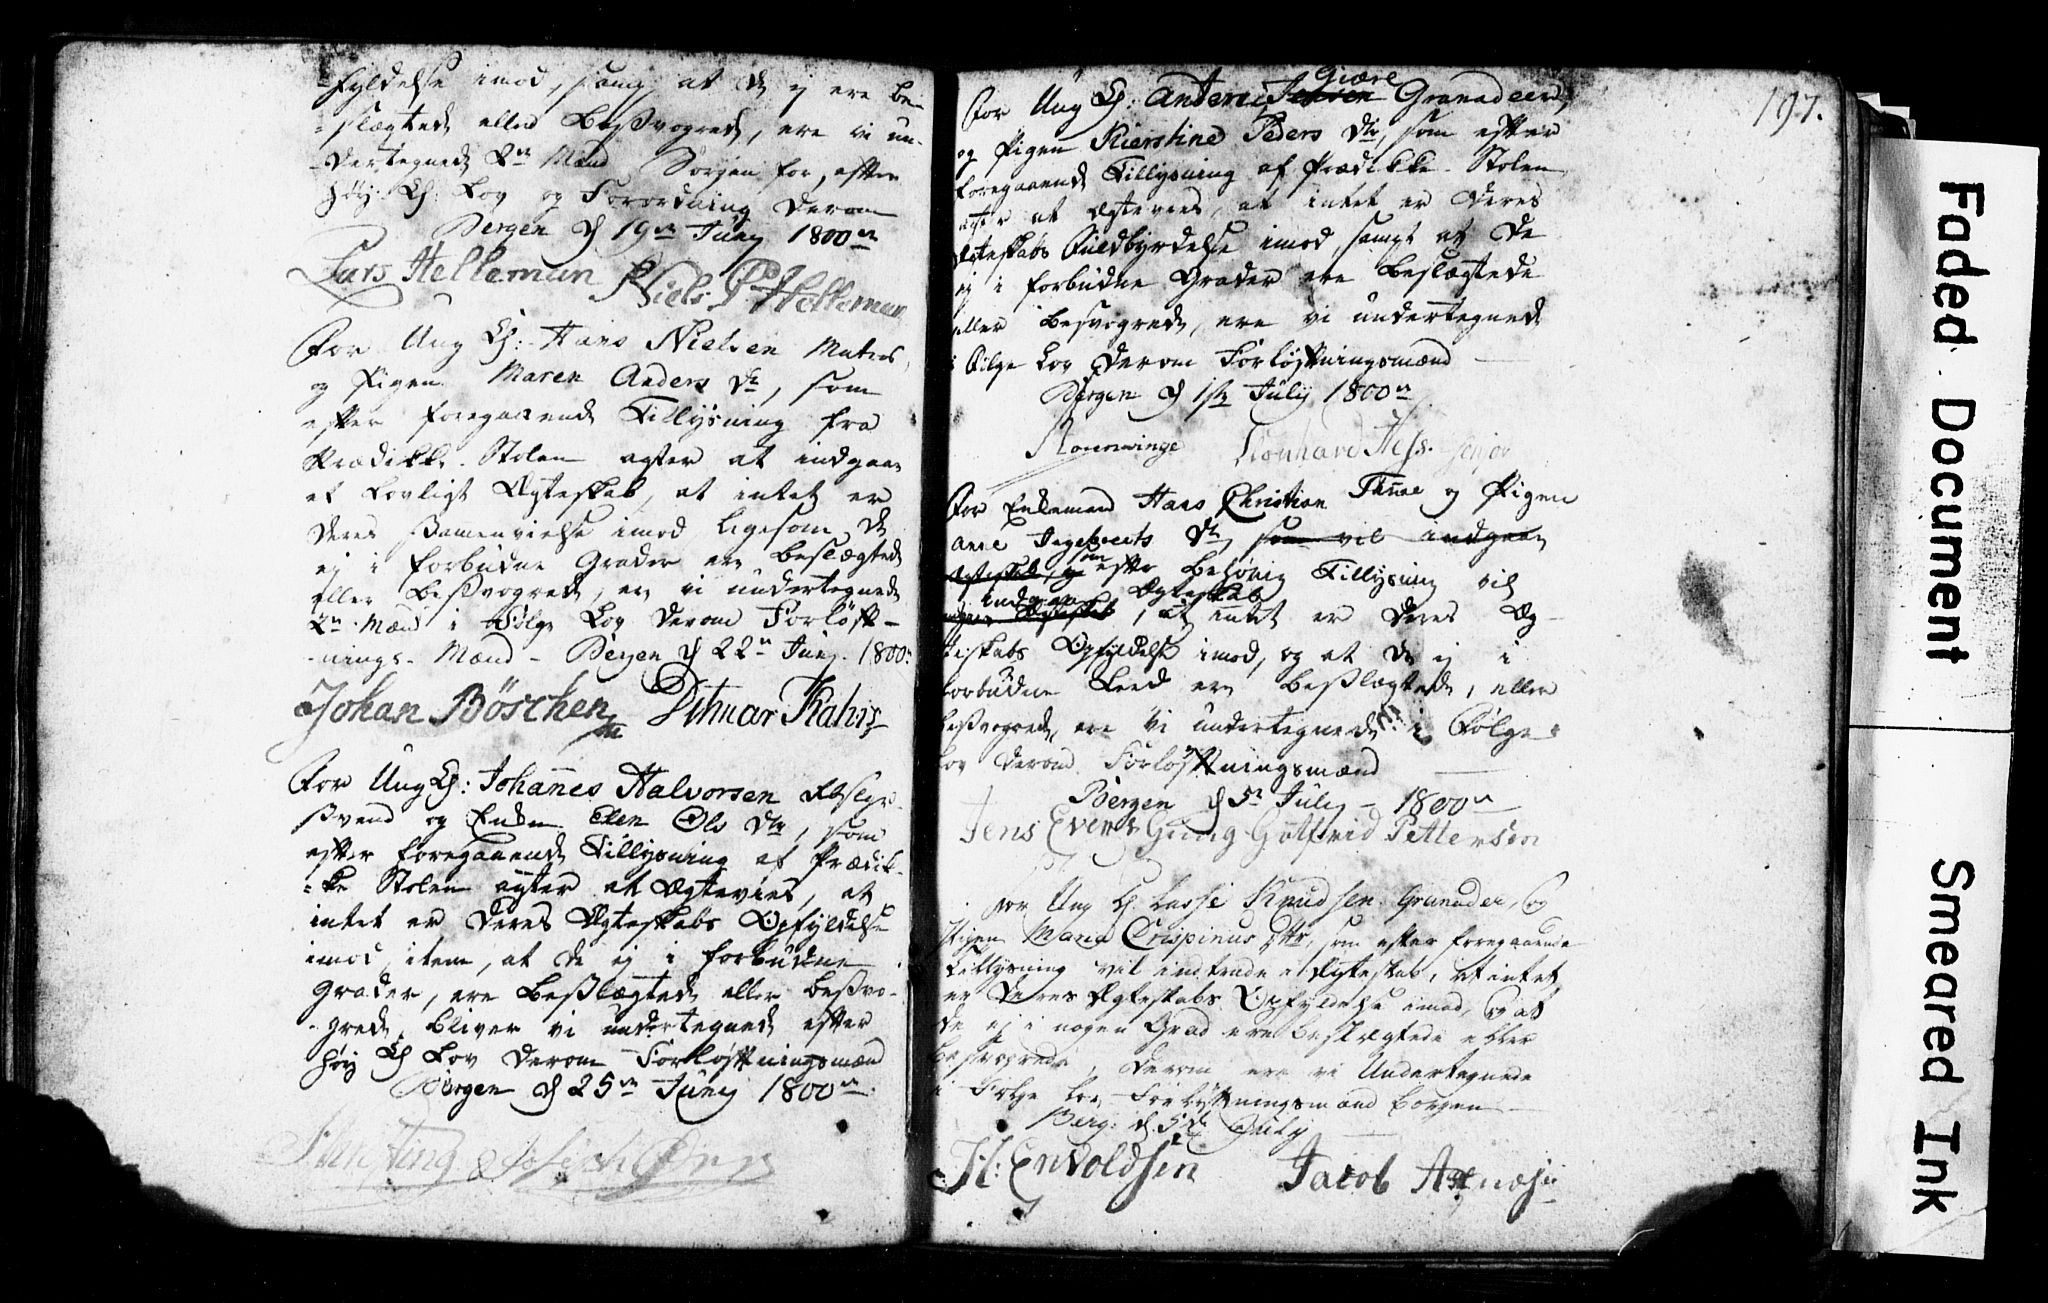 fyldelse imod, samt at de ej ere be-
slægtede eller besvogrede, ere vi un-
dertegnede 2de Mænd Borgen for, efter
høy K: Lov og Forordning derom
Bergen d 19de Junj 1800
Lars Helleman Niels P Helleman
For Ung K: Hans Nielsen Matros,
og Pigen Maren Anders Dr, som
efter foregaaende Tillysning fra
Prædikke-Stolen agter at indgaae
et Lovligt Ægteskab, at intet er
deres Samenvielse imod ligesom de
ej i forbudne Grader ere beslægtede
eller besvogrede, ere vi undertegnede
2de Mænd i Følge Lov derom Forløft-
nings-Mænd - Bergen d 22 Junj 1800
Johan Böschen Ditmar Kahrs
For Ung K: Johannes Halvorsen
svend og Enken Elen Ols Dtr, som
efter foregaaende Tillysning af Prædik-
ke Stolen agter at Ægtevies, at
intet er deres Ægteskabs Opfyldelse
imod, item, at de ej i forbudne
Grader, ere beslægtede eller besvo-
grede, bliver vi undertegnede efter
høy K Lov derom Forløftningsmænd
Bergen d 25de Junj 1800
197.
Giære
For Ung K: Anders Jensen Granadeer,
og Pigen Kierstine Peders Dtr, som efter
foregaaende Tillysning af Prædikke-Stolen
agter at Ægtevies, at intet er deres
Ægteskabs Fuldbyrdelse imod, sampt at de
ej i forbudne Grader ere beslægtede
eller besvogrede, ere vi undertegnede
i Følge Lov derom Forløftningsmænd
Bergen d 1ste July 1800
Leonhard Hess.
For Enkemand Hans Christian og Pigen
Ane Ingebrets Dr, som vil indgaae
Ægteskab, og som efter behørig Tillysning vil
indgaae Ægteskab
Ægteskab, at intet er deres Æg-
teskabs Opfyldelse imod, og at de ej i
forbudne Leed ere beslægtede, eller
besvogrede, ere vi undertegnede i Følge
Lov derom Forløftningsmænd
Bergen d 5te July - 1800
Jens Evers Georg Gotfried Petterson
For Ung K. Lasse Knudsen Granader, og
Pigen Maria Crispinus Dtr, som efter foregaaende
Tillysning vil indtræde i Ægteskab, at intet
er deres Ægteskabs Opfyldelse imod, og at
de ej i nogen Grad ere beslægtede eller
besvogrede, derom ere vi Undertegnede
i Følge Lov Forløftningsmænd Borgen
Berg: d. 5te July
H: Envoldsen Jacob
Faded Document
Smeared Ink